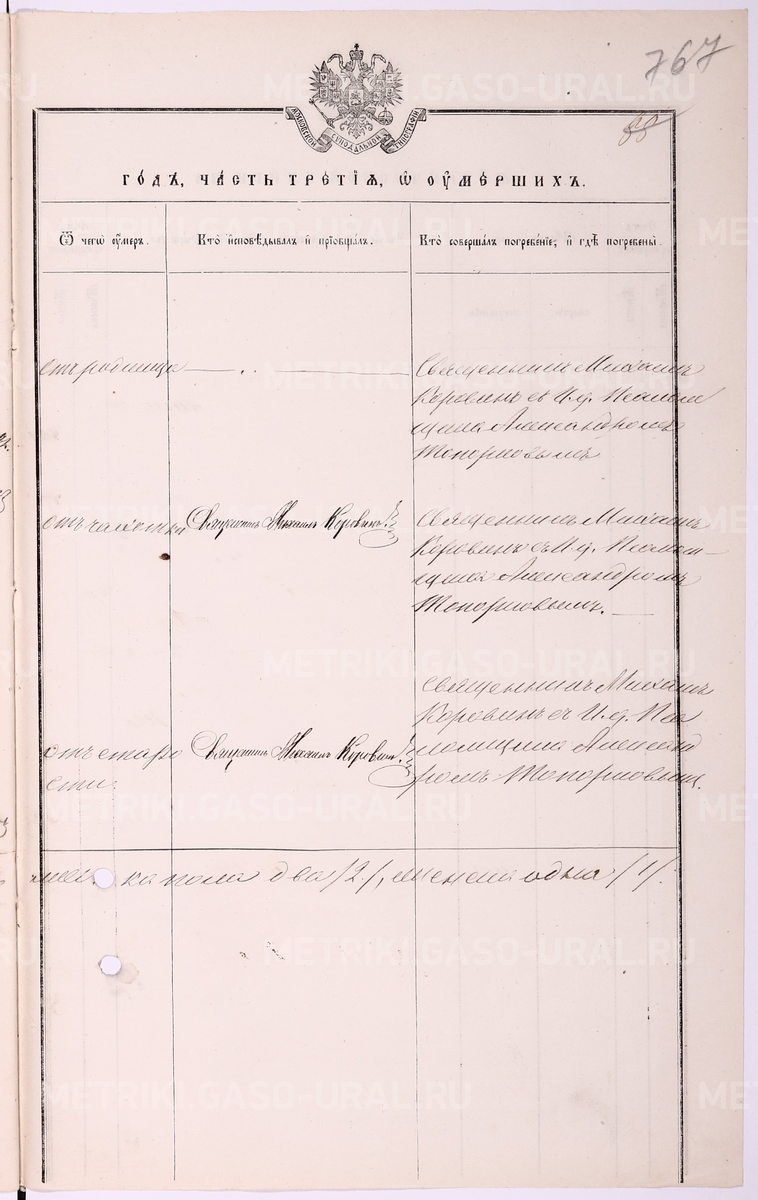 767
88
МОСКОВСКОЙ СѴНОДАЛЬНОЙ ТИПОГРАФІИ
ГО́ДЪ, ЧА́СТЬ ТРЕ́ТІЯ, Ѡ҆ ОУ҆МЕ́РШИХЪ.
Ѿ чегѡ̀ оу҆́меръ.
Кто̀ и҆сповѣ́дывалъ и҆ прїѡбща́лъ.
Кто̀ соверша́лъ погребе́нїе, и҆ гдѣ̀ погребены̀.
отъ родимца
Священникъ Михаилъ
Коровинъ съ И.д. Псалом
щика Александромъ
Топорковымъ
отъ чахотки
Священникъ Михаилъ Коровинъ
Священникъ Михаилъ
Коровинъ съ И.д. Псалом-
щика Александромъ
Топорковымъ.
отъ старо
сти.
Священникъ Михаилъ Коровинъ
Священникъ Михаилъ
Коровинъ съ И.д. Пса
ломщика Александ
ромъ Топорковымъ.
ка пола два /2/, женска одна /1/.
METRIKI.GASO-URAL.RU